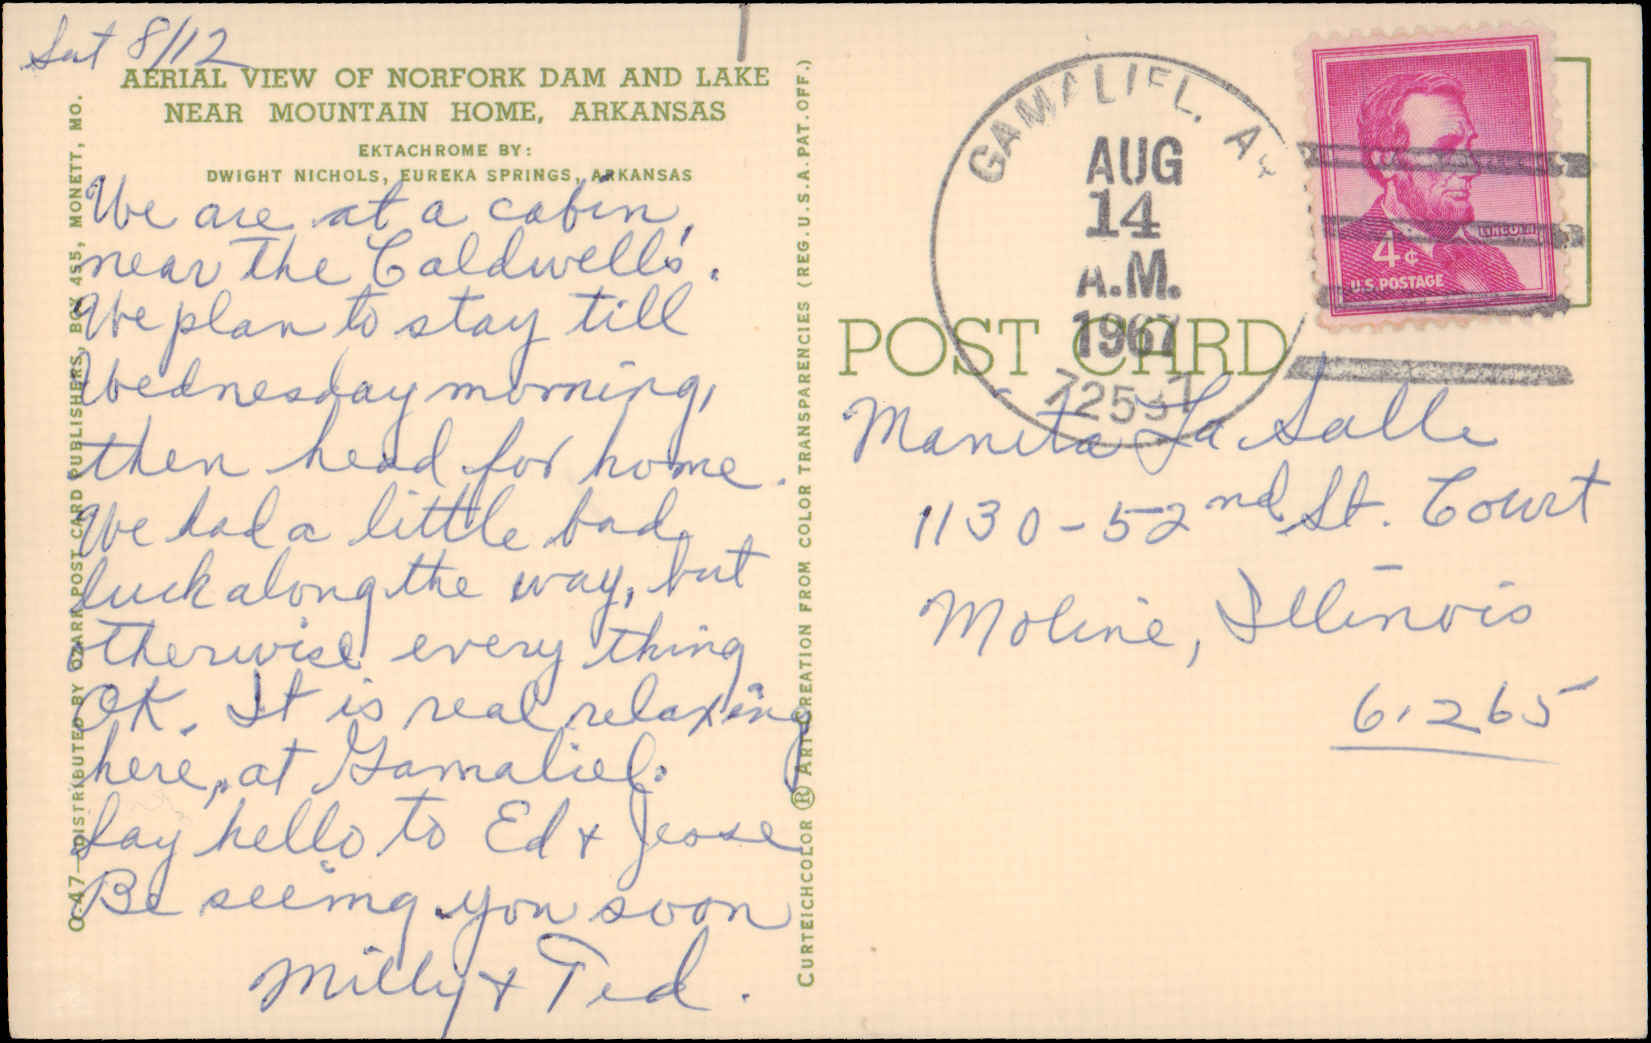 Sat 8/12
AERIAL VIEW OF NORFORK DAM AND LAKE
NEAR MOUNTAIN HOME, ARKANSAS
EKTACHROME BY:
DWIGHT NICHOLS, EUREKA SPRINGS, ARKANSAS
We are at a cabin,
near the Caldwell's.
We plan to stay till
Wednesday morning,
then head for home.
We had a little bad
luck along the way, but
otherwise every thing
OK. It is real relaxing
here, at Gamaliel.
Say hello to Ed & Jesse
Be seeing you soon
Milly & Ted.
O-47—DISTRIBUTED BY OZARK POST CARD PUBLISHERS, BOX 455, MONETT, MO.
CURTEICHCOLOR ® ART-CREATION FROM COLOR TRANSPARENCIES (REG. U.S.A. PAT. OFF.)
GAMALIEL, A
AUG
14
A.M.
1967
72537
LINCOLN
4¢
U.S. POSTAGE
POST CARD
Manita La Salle
1130-52nd St. Court
Moline, Illinois
61265